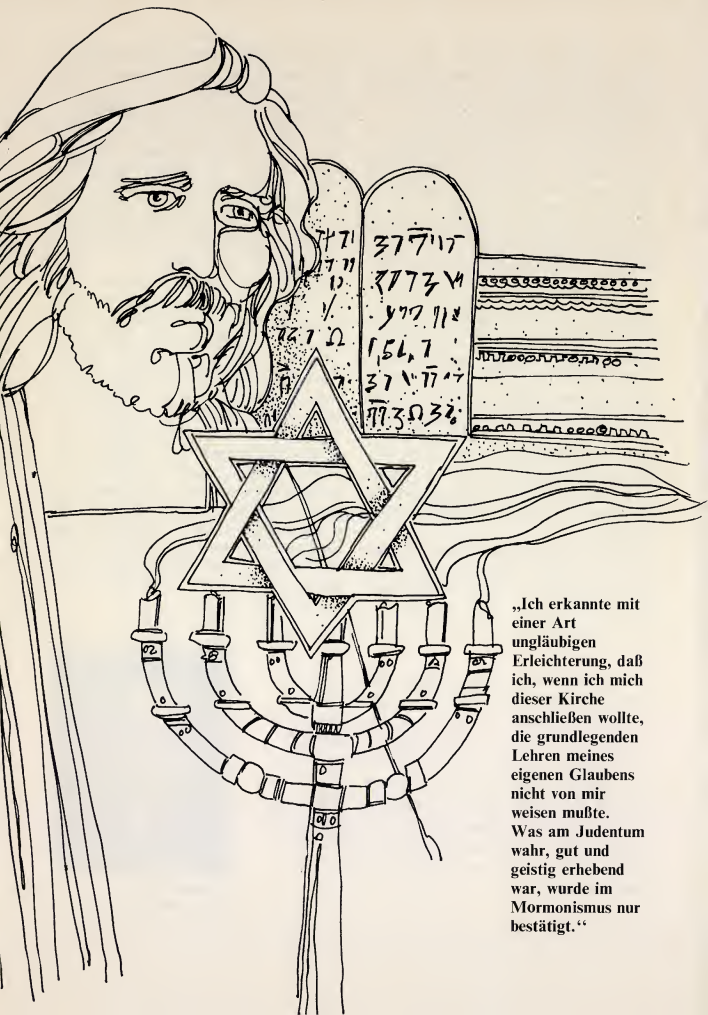 „Ich erkannte mit
einer Art
ungläubigen
Erleichterung, daß
ich, wenn ich mich
dieser Kirche
anschließen wollte,
die grundlegenden
Lehren meines
eigenen Glaubens
nicht von mir
weisen mußte.
Was am Judentum
wahr, gut und
geistig erhebend
war, wurde im
Mormonismus nur
bestätigt.“